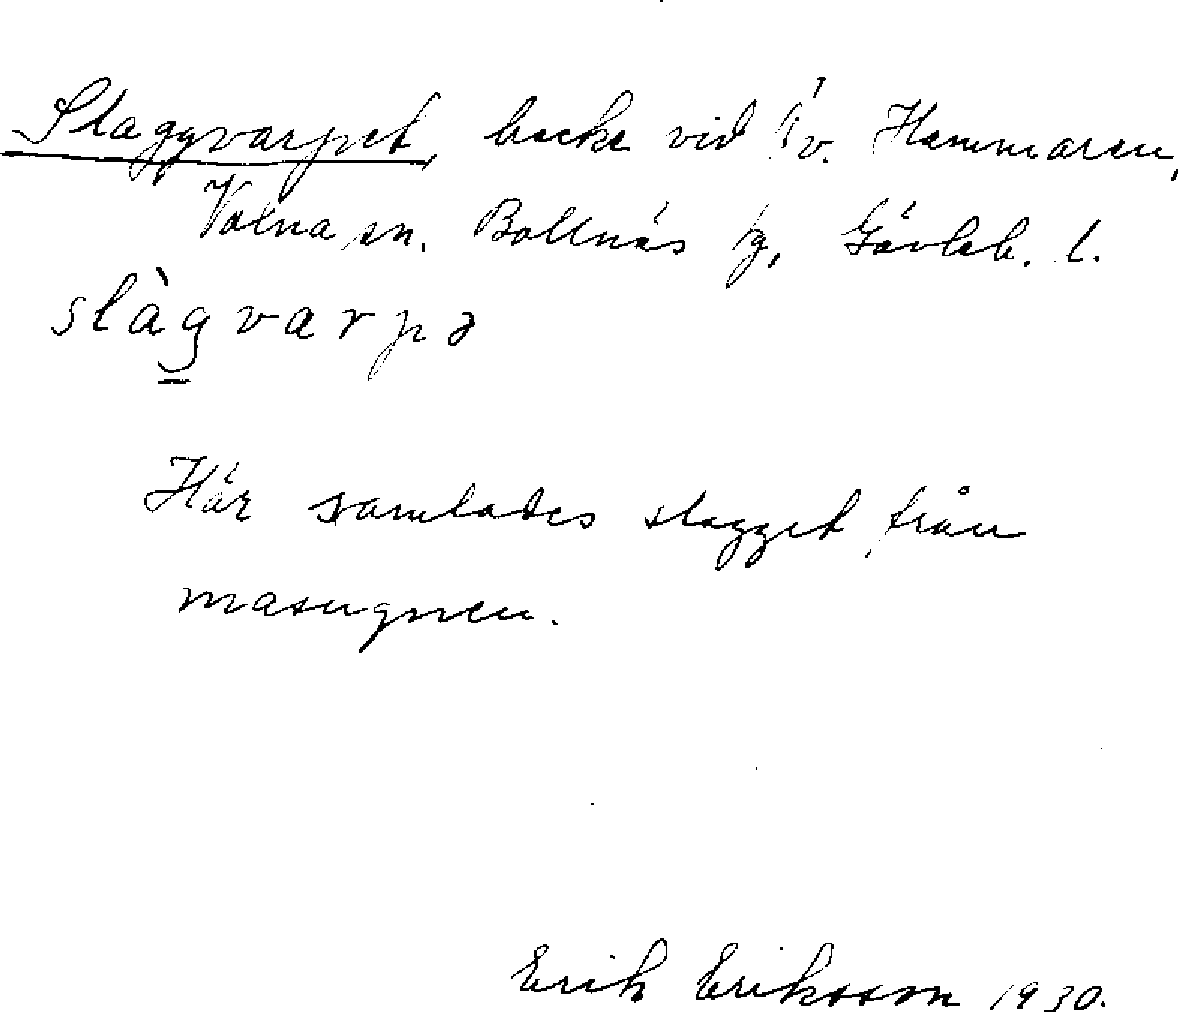 Slaggvarpet, backe vid Öv. Hammaren,
Volna sn. Bollnäs tg, Gävleb. l.
slàgvarpə
Här samlades slagget från
masugnen.
Erik Eriksson 1930.